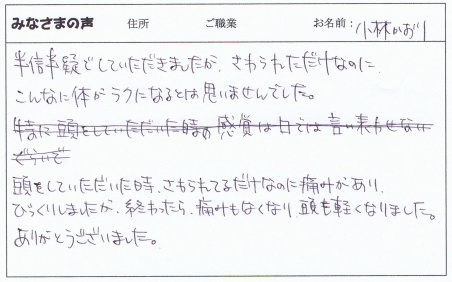 みなさまの声 住所 ご職業 お名前：小林かおり
半信半疑でしていただきましたが、さわられただけなのに
こんなに体がラクになるとは思いませんでした。
特に頭をしていただいた時の感覚は口では言い表わせない
ぐらいで
頭をしていただいた時、さわられてるだけなのに痛みがあり、
びっくりしましたが、終わったら、痛みもなくなり、頭も軽くなりました。
ありがとうございました。